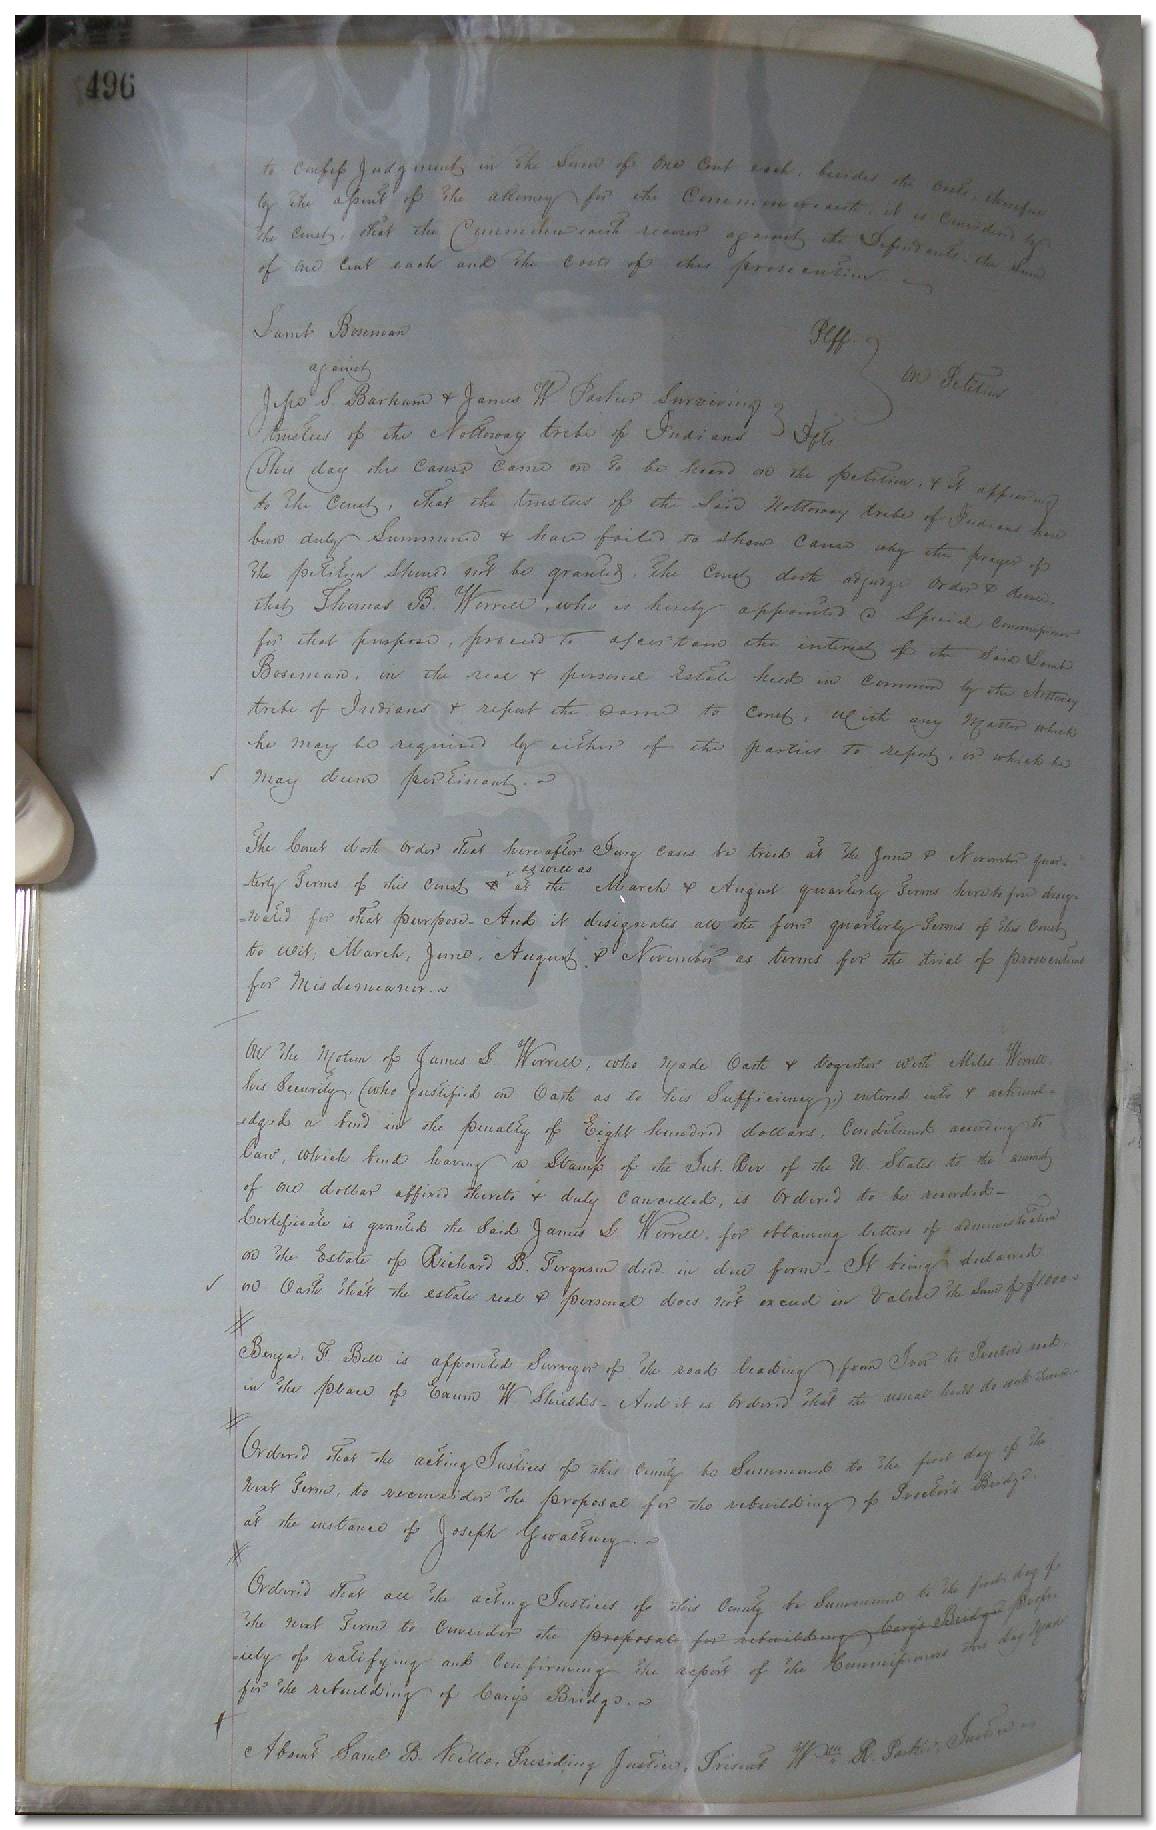 496
to confess Judgment in the Sum of one Cent each, besides the costs, therefore
by the assent of the attorney for the Commonwealth, it is considered by
the Court, that the Commonwealth recover against the Defendants, the Sum
of one Cent each and the costs of this prosecution.
Lamb Boseman Plff
against on Petition
Jesse S. Barham & James W Parker Surviving
trustees of the Nottoway tribe of Indians Dfts
This day this cause came on to be heard on the petition, & it appearing
to the Court, that the trustees of the Said Nottoway tribe of Indians have
been duly Summoned & have failed to show cause why the prayer of
the petition should not be granted. The Court doth adjudge order & decree,
that Thomas B. Worrell, who is hereby appointed a Special Commissioner
for that purpose, proceed to ascertain the interest of the Said Lamb
Boseman, in the real & personal Estate held in common by the Nottoway
tribe of Indians & report the same to Court, with any Matter which
he may be required by either of the parties to report, or which he
may deem pertinent.
The Court doth order that hereafter Jury cases be tried at the June & November quar-
terly Terms of this Court & as well as at the March & August quarterly Terms heretofore desig-
nated for that purpose- And it designates all the four quarterly Terms of this Court
to wit, March, June, August & November as terms for the trial of prosecutions
for Misdemeanor.
On the Motion of James S Worrell, who made Oath & together with Miles Worrell
his Security, (who justified on Oath as to his Sufficiency,) entered into & acknowl-
edged a bond in the penalty of Eight hundred dollars, Conditioned according to
Law, which bond having a Stamp of the Int. Rev of the U. States to the amount
of one dollar affixed thereto & duly Cancelled, is ordered to be recorded-
Certificate is granted the Said James S Worrell, for obtaining letters of administration
on the Estate of Richard B. Ferguson decd. in due form- It being declared
on Oath that the estate real & personal does not exceed in Value the Sum of $1000
Benja. F Bell is appointed Surveyor of the road leading from Ivor to Proctors
in the place of W Shields- And it is Ordered that the usual hands do
Ordered that the acting Justices of this County be Summoned to the first day of the
next Term, to reconsider the proposal for the rebuilding of Proctor's Bridge
at the instance of Joseph Gwaltney.
Ordered that all the acting Justices of this County be Summoned to the first day of
the next Term to Consider the proposals for rebuilding Cary's Bridge propri-
ety of ratifying and Confirming the report of the Commissioners this day made
for the rebuilding of Cary's Bridge.
Absent Saml B. Kello, Presiding Justice, Present Wm R. Parker, Justice